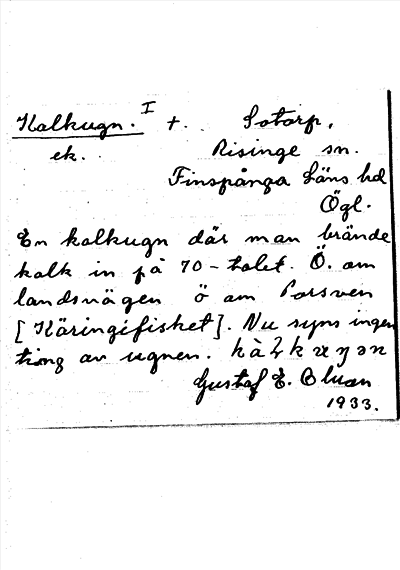 Kalkugn. I +. Sotorp,
ek. Risinge sn.
Finspånga Läns hd
Ögl.
En kalkugn där man brände
kalk in på 70-talet. Ö. om
landsvägen ö om Porsven
[Käringifisket]. Nu syns ingen
ting av ugnen.
Gustaf E. Bluan
1933.